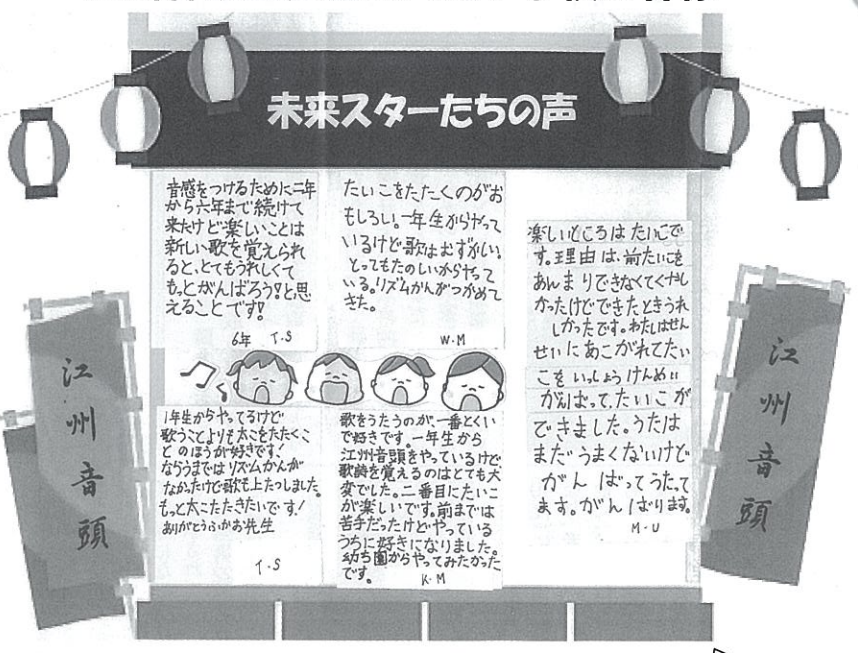 未来スターたちの声
音感をつけるために二年
から六年まで続けて
来たけど楽しいことは
新しい歌を覚えられ
ると、とてもうれしくて
もっとがんばろう!と思
えることです!
6年 T.S
たいこをたたくのがお
もしろい。一年生からやって
いるけど歌はおずかしい。
とってもたのしいからやって
いる。リズムかんがつかめて
きた。
W.M
楽しいところはたいこで
す。理由は、前たいこを
あんまりできなくてくやし
かったけどできたときうれ
しかったです。わたしはせん
せいにあこがれてたい
こをいっしょうけんめい
がんばって、たいこが
できました。うたは
まだうまくないけど
がんばってうたって
ます。がんばります。
M.U
1年生からやってるけど
歌うことよりも太こをたたくこ
とのほうが好きです!
ならうまではリズムかんが
なかったけど歌も上たつしました。
もっと太こたたきたいです!
ありがとうふかお先生
T.S
歌をうたうのが、一番とくい
で好きです。一年生から
江州音頭をやっているけど、
歌詩を覚えるのはとても大
変でした。二番目にたいこ
が楽しいです。前までは
苦手だったけどやっている
うちに好きになりました。
幼ち園からやってみたかった
です。
K.M
江州音頭
江州音頭